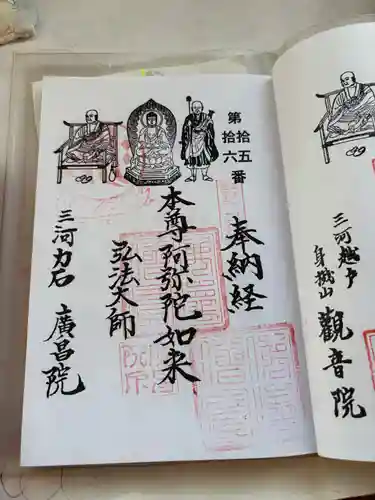 三河越戸
身城山
觀音院
第拾五
拾六番
奉納経
本尊阿弥陀如来
弘法大師
三河力石
廣昌院